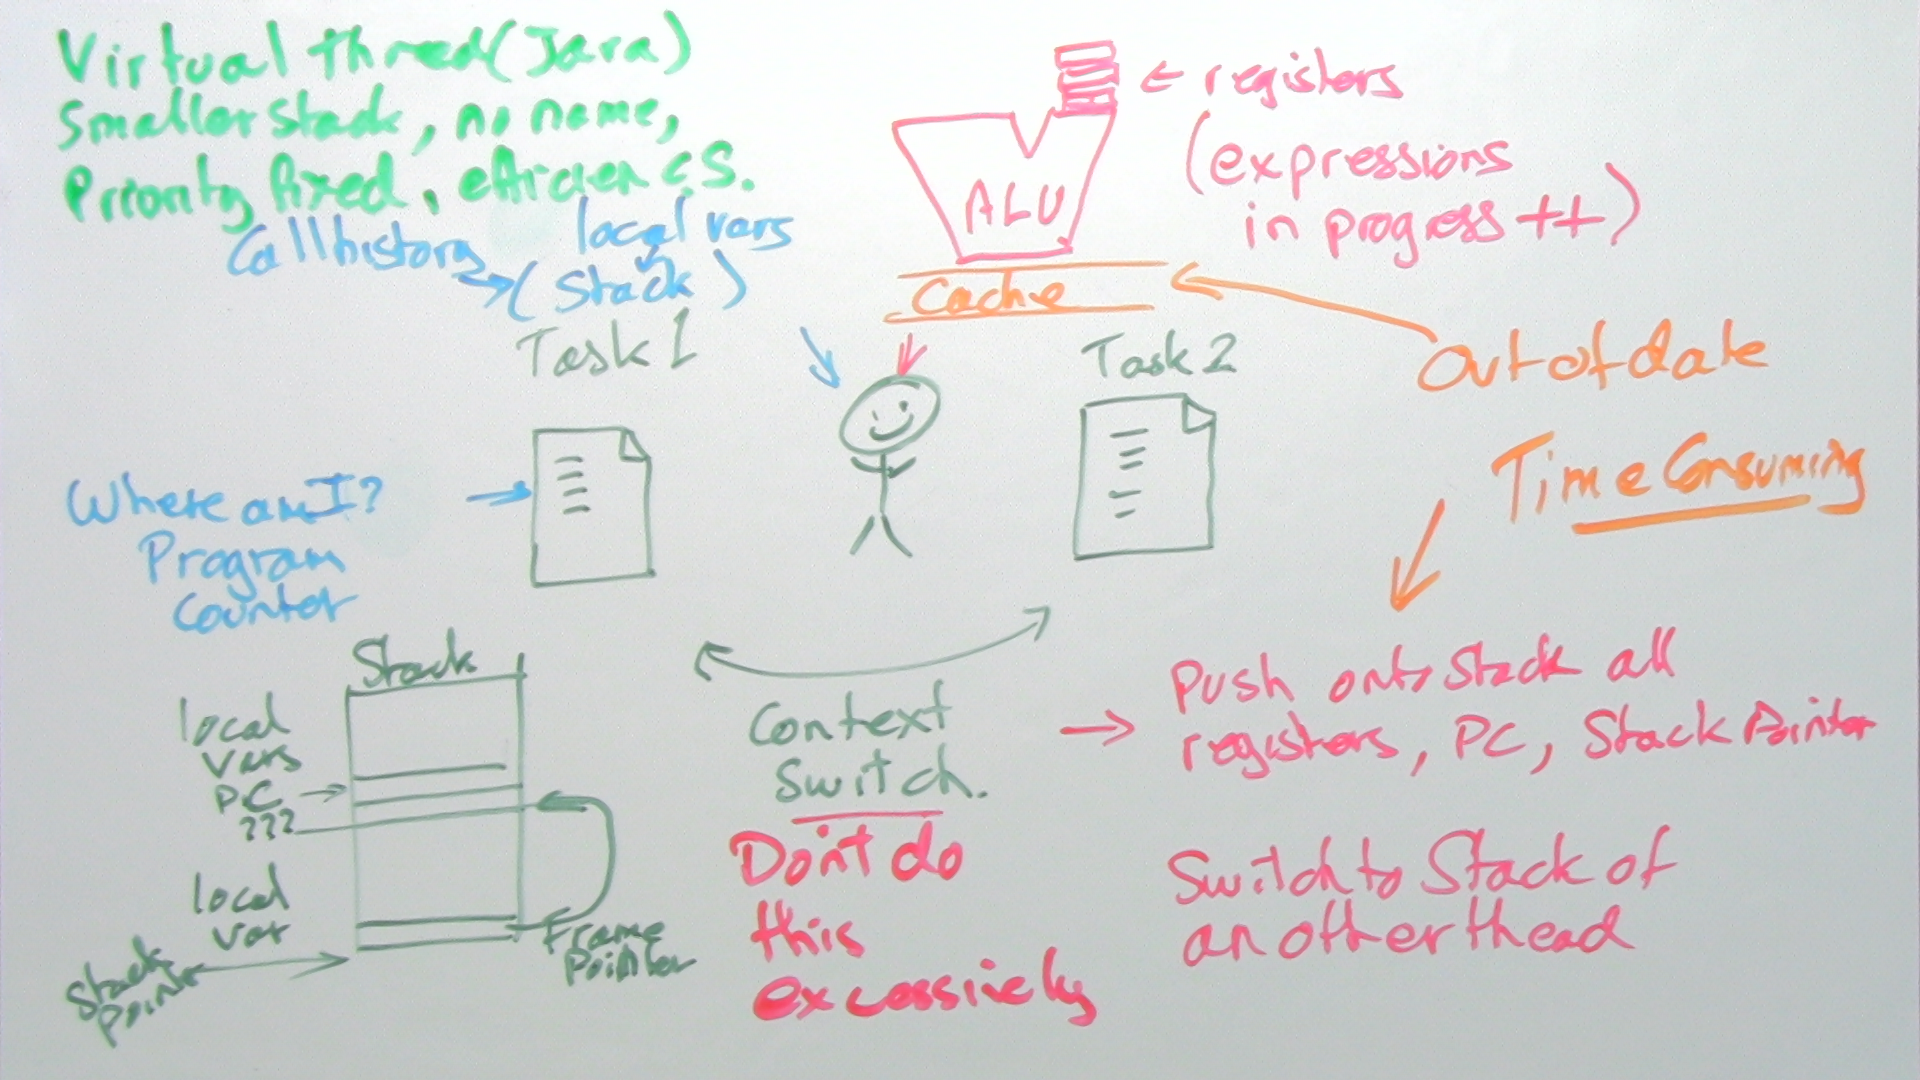 Virtual thred(Java)
Smaller stack, no name,
Priority fixed, efficien C.S.
Call history
local vars
(Stack)
Task 1
registers
(expressions
in progress ++)
ALU
Cache
Out of date
Task 2
Time Consuming
Where am I?
Program
Counter
Stack
local
vars
PC
???
local
var
Stack
Pointer
Frame
Pointer
Context
Switch.
Don't do
this
excessively
Push onto Stack all
registers, PC, Stack Pointer
Switch to Stack of
another thead